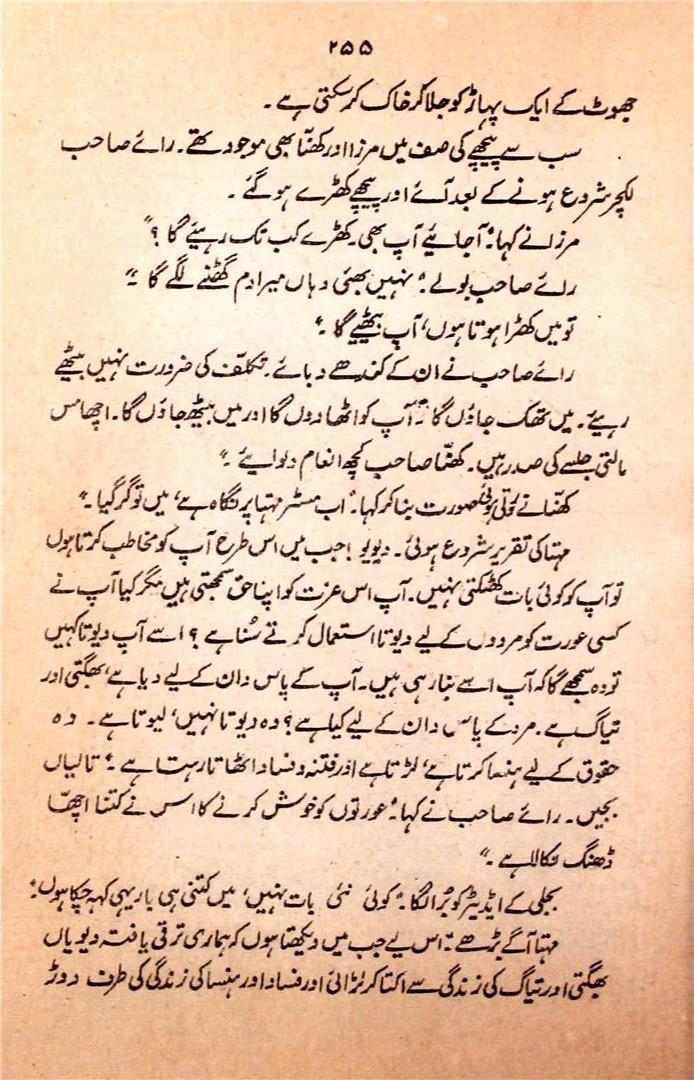 ۲۵۵
جھوٹ کے ایک پہاڑ کو جلا کر خاک کر سکتی ہے۔
سب سے پیچھے کی صف میں مرزا اور کھنّا بھی موجود تھے۔ رائے صاحب
لکچر شروع ہونے کے بعد آئے اور پیچھے کھڑے ہو گئے۔
مرزا نے کہا: "آجائیے آپ بھی۔ کھڑے کب تک رہیئے گا؟"
رائے صاحب بولے: "نہیں بھئی وہاں میرا دم گھٹنے لگے گا۔"
تو میں کھڑا ہوتا ہوں، آپ بیٹھیے گا۔"
رائے صاحب نے ان کے کندھے دبائے۔ تکلّف کی ضرورت نہیں بیٹھے
رہیئے۔ میں تھک جاؤں گا تو آپ کو اٹھا دوں گا اور میں بیٹھ جاؤں گا۔ اچھا مس
مالتی جلسے کی صدر ہیں۔ کھنّا صاحب کچھ انعام دلوایئے۔"
کھنّا نے روتی ہوئی صورت بنا کر کہا۔ "اب مسٹر مہتا پر نگاہ ہے، میں تو گر گیا۔"
مہتا کی تقریر شروع ہوئی۔ دیویو! جب میں اس طرح آپ کو مخاطب کرتا ہوں
تو آپ کو کوئی بات کھٹکتی نہیں۔ آپ اس عزت کو اپنا حق سمجھتی ہیں مگر کیا آپ نے
کسی عورت کو مردوں کے لیے دیوتا استعمال کرتے سُنا ہے؟ اسے آپ دیوتا کہیں
تو وہ سمجھے گا کہ آپ اسے بنا رہی ہیں۔ آپ کے پاس دان کے لیے دیا ہے، بھگتی اور
تیاگ ہے۔ مرد کے پاس دان کے لیے کیا ہے؟ وہ دیوتا نہیں، لیوتا ہے۔ وہ
حقوق کے لیے ہنسا کرتا ہے، لڑتا ہے اور فتنہ و فساد اٹھاتا رہتا ہے۔" تالیاں
بجیں۔ رائے صاحب نے کہا: "عورتوں کو خوش کرنے کا اس نے کتنا اچھّا
ڈھنگ نکالا ہے۔"
بجلی کے ایڈیٹر کو بُرا لگا: "کوئی نئی بات نہیں، میں کتنی ہی بار یہی کہہ چکا ہوں۔"
مہتا آگے بڑھے۔ "اس لیے جب میں دیکھتا ہوں کہ ہماری ترقی یافتہ دیویاں
بھگتی اور تیاگ کی زندگی سے اکتا کر لڑائی اور فساد اور ہنسا کی زندگی کی طرف دوڑ